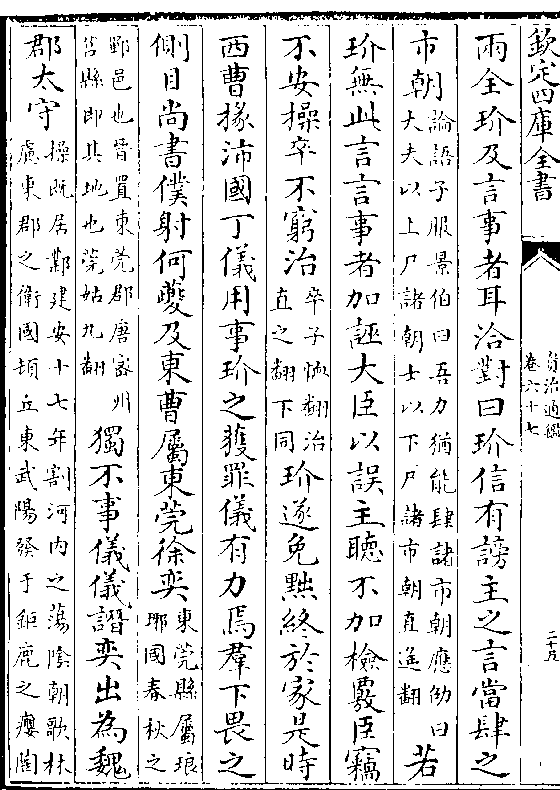 欽定四庫全書
資治通鑑
卷六十七
二十九
兩全玠及言事者耳洽對曰玠信有謗主之言當肆之
市朝論語子服景伯曰吾力猶能肆諸市朝應劭曰大夫以上尸諸朝士以下尸諸市朝直遥翻若
玠無此言言事者加誣大臣以誤主聽不加檢覈臣竊
不安操卒不窮治卒子恤翻治直之翻下同玠遂免黜終於家是時
西曹掾沛國丁儀用事玠之獲罪儀有力焉羣下畏之
側目尚書僕射何夔及東曹屬東莞徐奕東莞縣屬琅邪國春秋之
鄆邑也晉置東莞郡唐密州莒縣即其地也莞姑丸翻獨不事儀儀譖奕出為魏
郡太守操既居鄴建安十七年割河内之蕩陰朝歌林慮東郡之衛國頓丘東武陽發于鉅鹿之廮陶